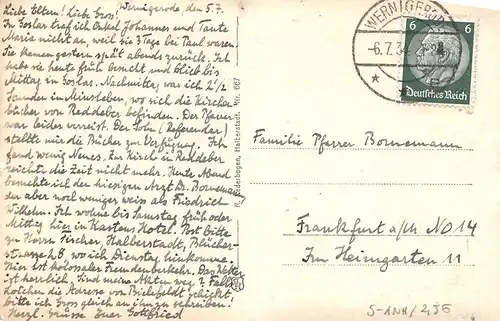 Wernigerode den 5.7.
Liebe Eltern! Liebe Gros!
In Goslar traf ich Onkel Johannes und Tante
Maria nicht an, weil sie 3 Tage bei Paul waren.
Sie kamen gestern spät abends zurück. Ich
habe sie heute früh besucht und blieb bis
Mittag in Goslar. Nachmittag war ich 2 1/2
Stunden in Minsleben, wo sich die Kirchen
bücher von Reddeber befinden. Der Pfarrer
war leider verreist. Der Sohn (Referendar)
stellte mir die Bücher zur Verfügung. Ich
fand wenig Neues. Zur Kirche in Reddeber
reichte die Zeit nicht mehr. Heute Abend
besuchte ich den hiesigen Arzt Dr. Bornemann
der aber noch weniger weiss als Friedrich
Wilhelm. Ich wohne bis Samstag früh oder
Mittag hier in Kastens Hotel. Post bitte
zu Herrn Fischer, Halberstadt, Blücher-
strasse 28, wo ich Dienstag hinkomme.
Hier ist kolossaler Fremdenverkehr. Das Wetter
ist herrlich. Sind meine Akten weg? Falls
Lottchen die Adresse von Bielefeldt schickt,
bitte ich Gros gleich an ihn zu schreiben!
Herzl. Grüsse Euer Gottfried
R. Halberstadt. Nr. 667
WERNIGERODE
6.7.34
6 6
Deutsches Reich
Familie Pfarrer Bornemann
Frankfurt a/M NO 14
Im Heimgarten 11
S-ANH/236